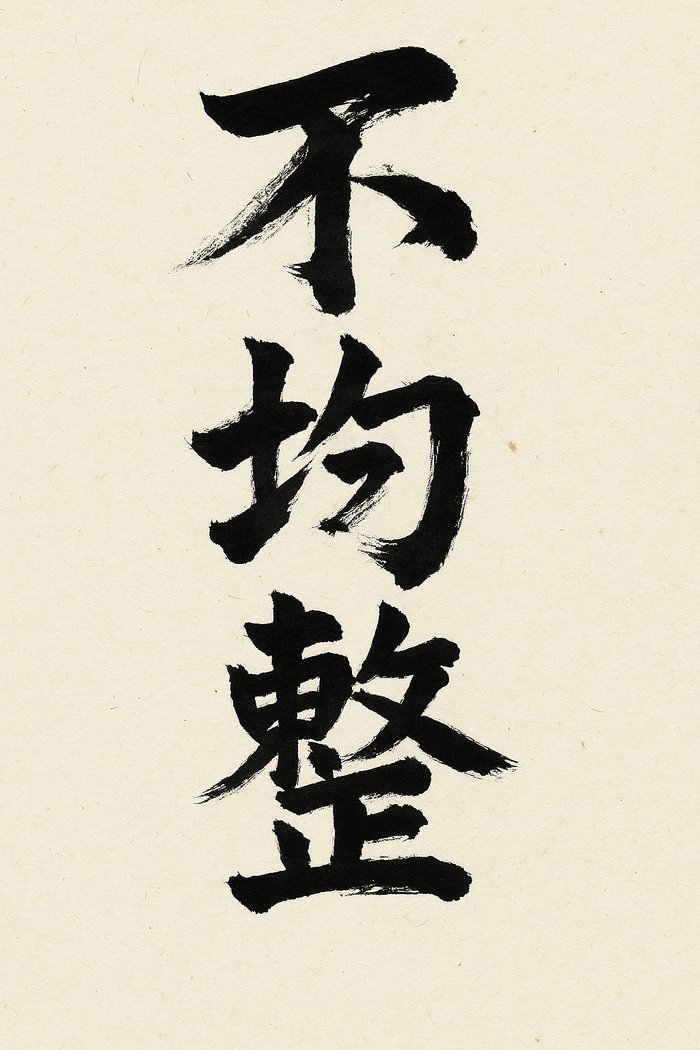 不均整